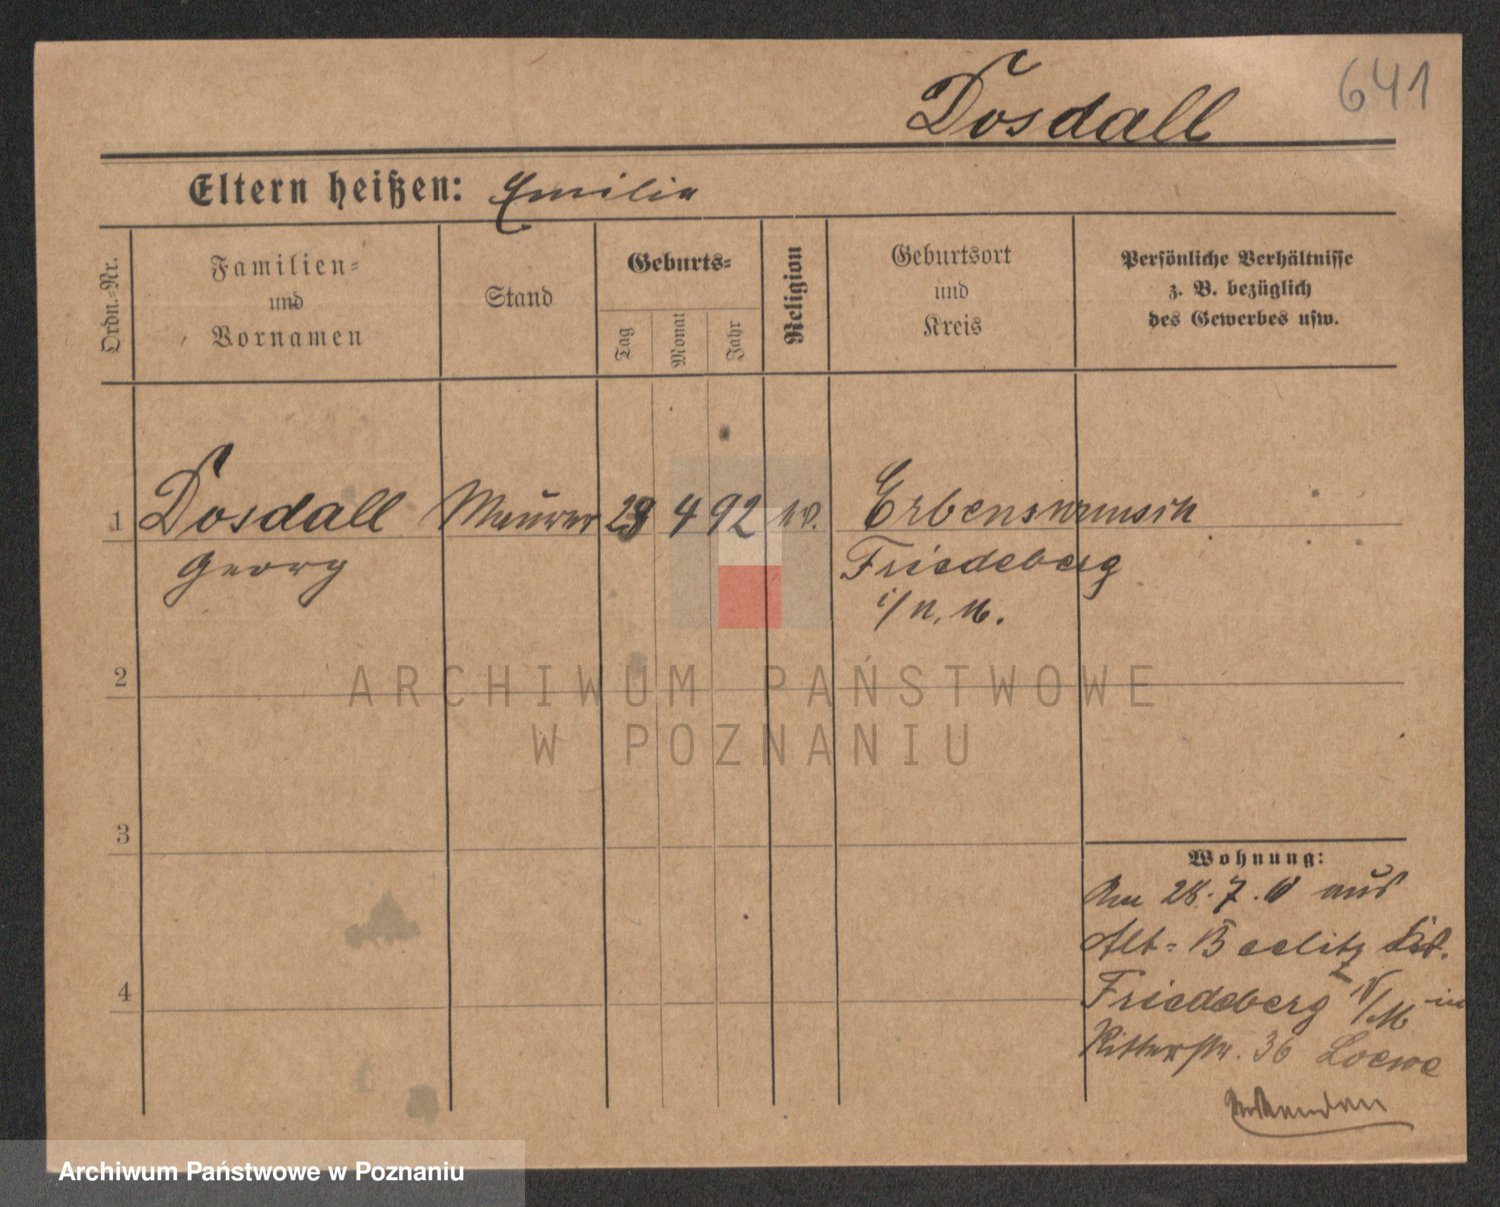 641
Dosdall
Eltern heißen: Emilie
Ordn.-Nr.
Familien-
und
Vornamen
Stand
Geburts-
Tag
Monat
Jahr
Religion
Geburtsort
und
Kreis
Persönliche Verhältnisse
z. B. bezüglich
des Gewerbes usw.
1 Dosdall Maurer 28 4 92 ev. Erbenswunsch
Georg Friedeberg
i/N. M.
2
ARCHIWUM PAŃSTWOWE
W POZNANIU
3
4
Wohnung:
Am 28. 7. aus
Alt-Beelitz
Friedeberg N/M in
Ritterstr. 36 Loewe
Archiwum Państwowe w Poznaniu